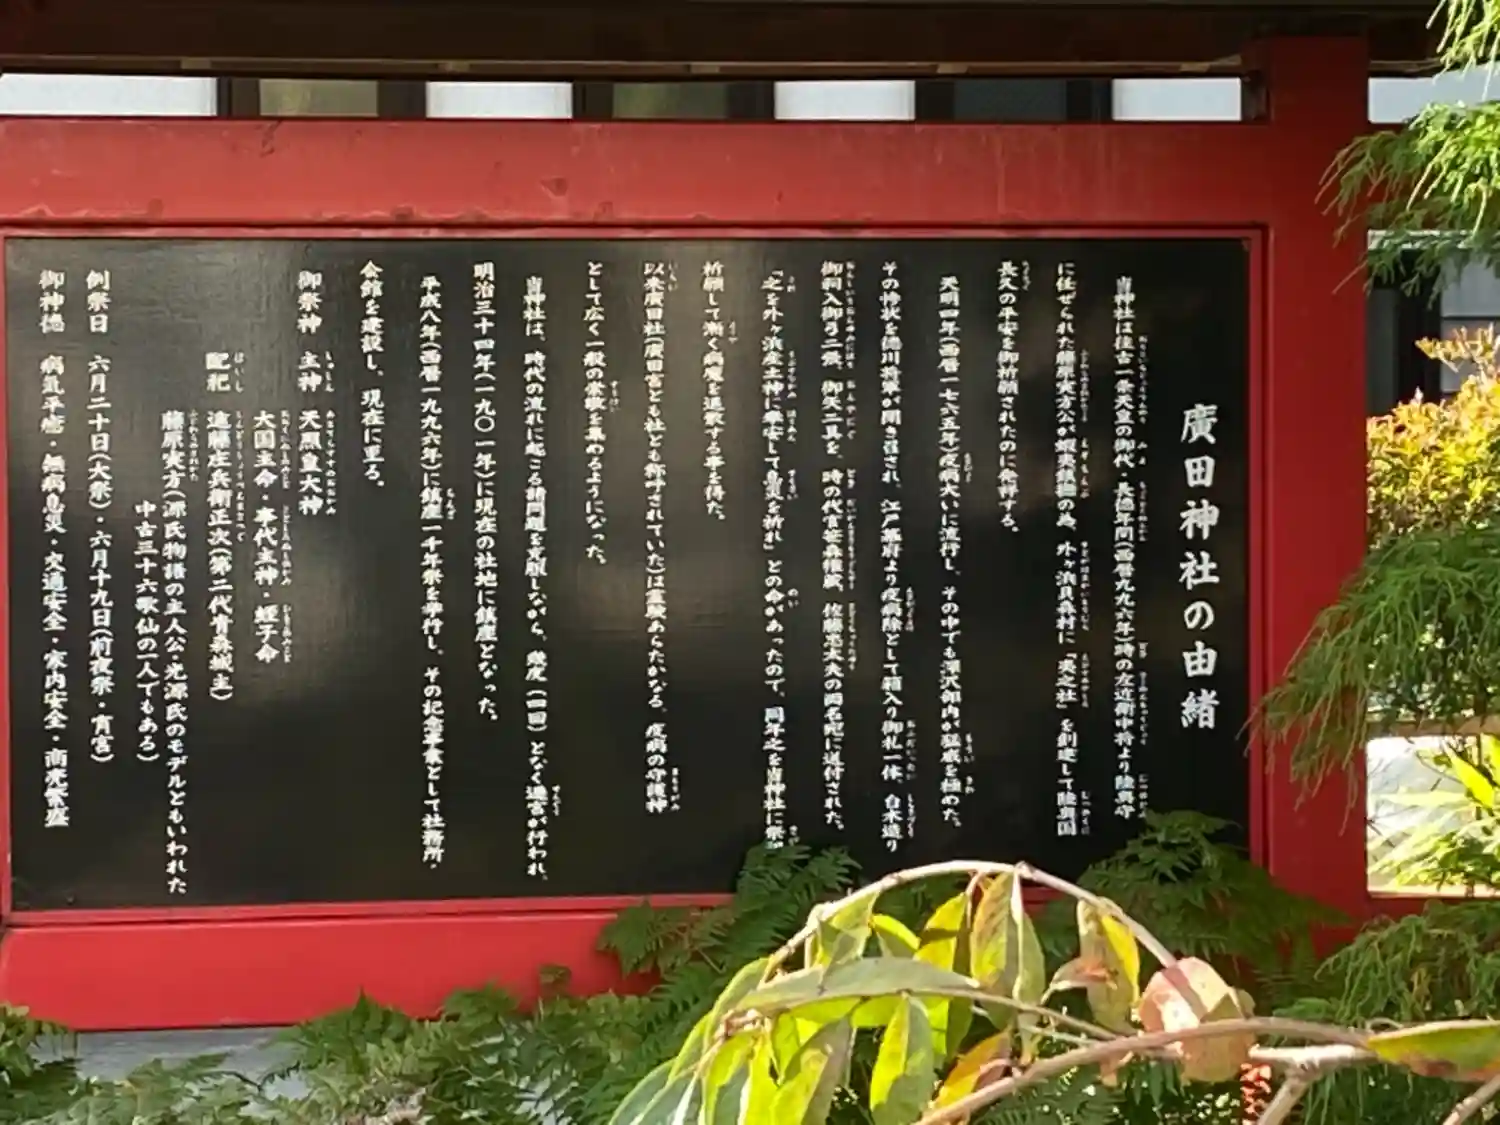 廣田神社の由緒
當神社は往古一条天皇の御代、長徳年間(西暦九九六年)時の左近衛中将より陸奥守
に任ぜられた藤原実方公が蝦夷鎮撫の為、外ヶ浜貝森村に「夷之社」を創建して陸奥国
長久の平安を御祈願されたのに発祥する。
天明四年(西暦一七六五年)疫病大いに流行し、その中でも深沢部内が猛威を極めた。
その惨状を徳川将軍が聞き召され、江戸幕府より疫病除として箱入り御札一体、白木造り
御祠入御弓二張、御矢二具を、時の代官笹森権蔵、佐藤忠太夫の両名宛に送付された。
「之を外ヶ浜産土神に奉安して息災を祈れ」との命があったので、同年之を當神社に祭
祈願して漸く病魔を退散する事を得た。
以来廣田社(廣田宮とも社とも称号されていた)は霊験あらたかなる、疫病の守護神
として広く一般の崇敬を集めるようになった。
當神社は、時代の流れに起こる諸問題を克服しながら、幾度(四回)となく遷宮が行われ、
明治三十四年(一九〇一年)に現在の社地に鎮座となった。
平成八年(西暦一九九六年)に鎮座一千年祭を挙行し、その記念事業として社務所・
会館を建設し、現在に至る。
御祭神 主神 天照皇大神
大国主命・事代主神・蛭子命
配祀 進藤庄兵衛正次(第二代青森城主)
藤原実方(源氏物語の主人公・光源氏のモデルともいわれた
中古三十六歌仙の一人でもある)
例祭日 六月二十日(大祭)・六月十九日(前夜祭・宵宮)
御神徳 病気平癒・無病息災・交通安全・家内安全・商売繁盛